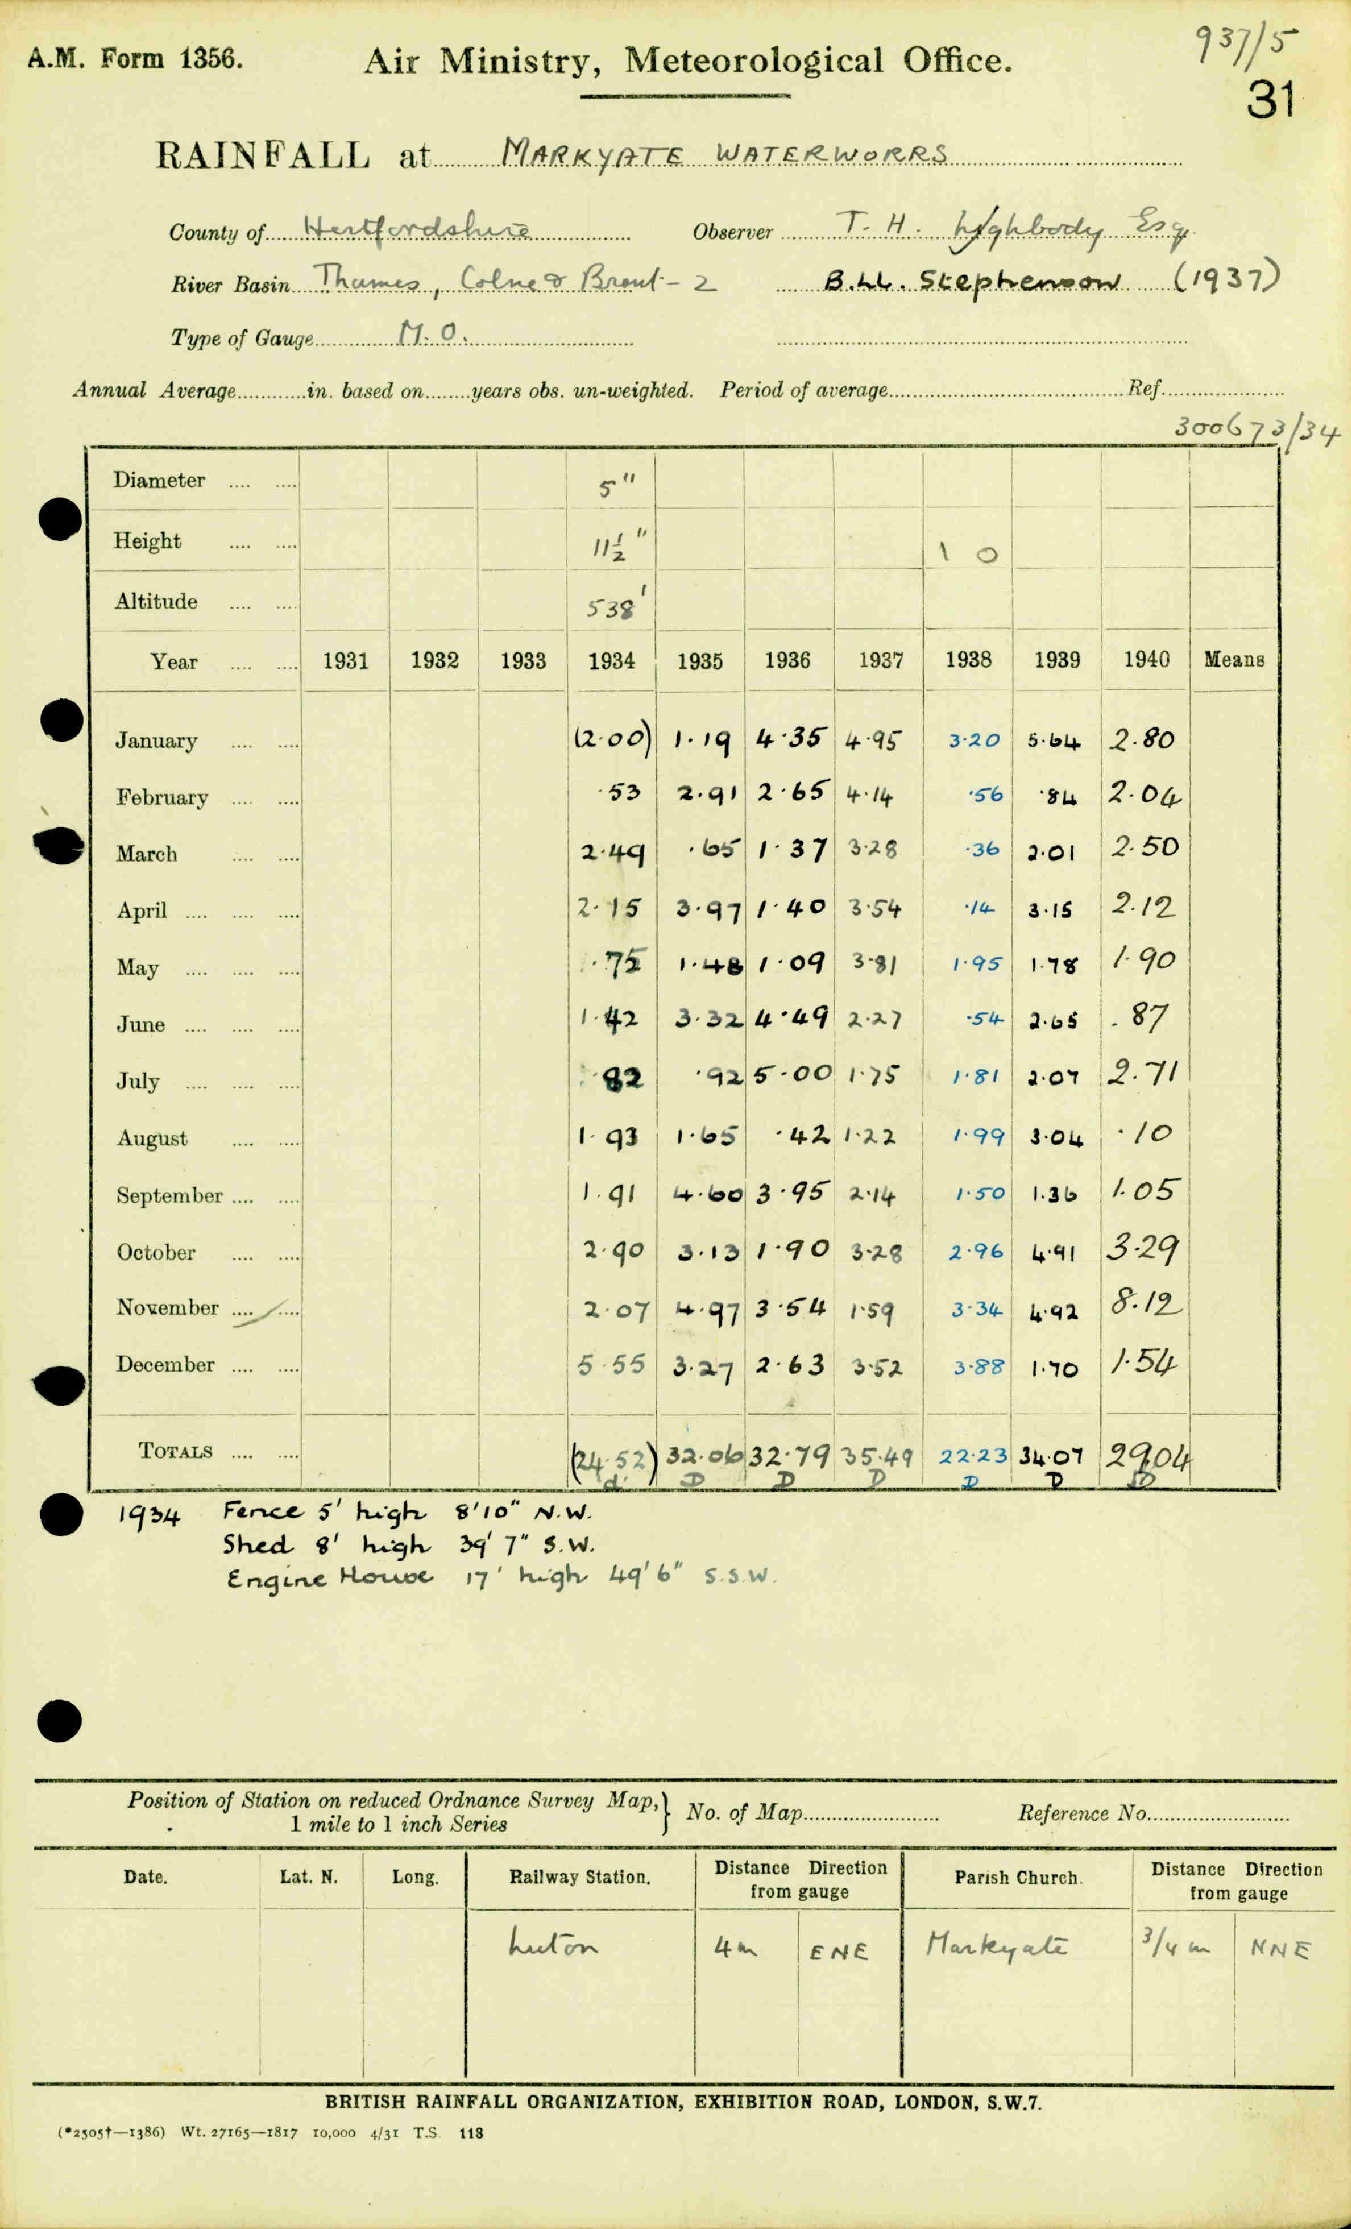 937/5
A.M. Form 1356. Air Ministry, Meteorological Office.
31
RAINFALL at MARKYATE WATERWORKS
County of Hertfordshire Observer T. H. Lighbody Esq
River Basin Thames, Colne & Brent - 2 B.LL. Stephenson (1937)
Type of Gauge M.O.
Annual Average in. based on years obs. un-weighted. Period of average Ref.
300673/34
Diameter 5"
Height 11½" 1 0
Altitude 538'
Year 1931 1932 1933 1934 1935 1936 1937 1938 1939 1940 Means
January (2.00) 1.19 4.35 4.95 3.20 5.64 2.80
February .53 2.91 2.65 4.14 .56 .84 2.04
March 2.49 .65 1.37 3.28 .36 2.01 2.50
April 2.15 3.97 1.40 3.54 .14 3.15 2.12
May .75 1.48 1.09 3.81 1.95 1.78 1.90
June 1.42 3.32 4.49 2.27 .54 2.65 .87
July .82 .92 5.00 1.75 1.81 2.07 2.71
August 1.93 1.65 .42 1.22 1.99 3.04 .10
September 1.91 4.60 3.95 2.14 1.50 1.36 1.05
October 2.90 3.13 1.90 3.28 2.96 4.91 3.29
November 2.07 4.97 3.54 1.59 3.34 4.92 8.12
December 5.55 3.27 2.63 3.52 3.88 1.70 1.54
TOTALS (24.52) 32.06 32.79 35.49 22.23 34.07 29.04
d D D D D D D
1934 Fence 5' high 8'10" N.W.
Shed 8' high 39' 7" S.W.
Engine House 17' high 49'6" S.S.W.
Position of Station on reduced Ordnance Survey Map, } No. of Map Reference No.
1 mile to 1 inch Series
Date. Lat. N. Long. Railway Station. Distance Direction from gauge Parish Church. Distance Direction from gauge
Luton 4m ENE Markyate 3/4 m NNE
BRITISH RAINFALL ORGANIZATION, EXHIBITION ROAD, LONDON, S.W.7.
(*2505†—1386) Wt. 27165—1817 10,000 4/31 T.S. 118